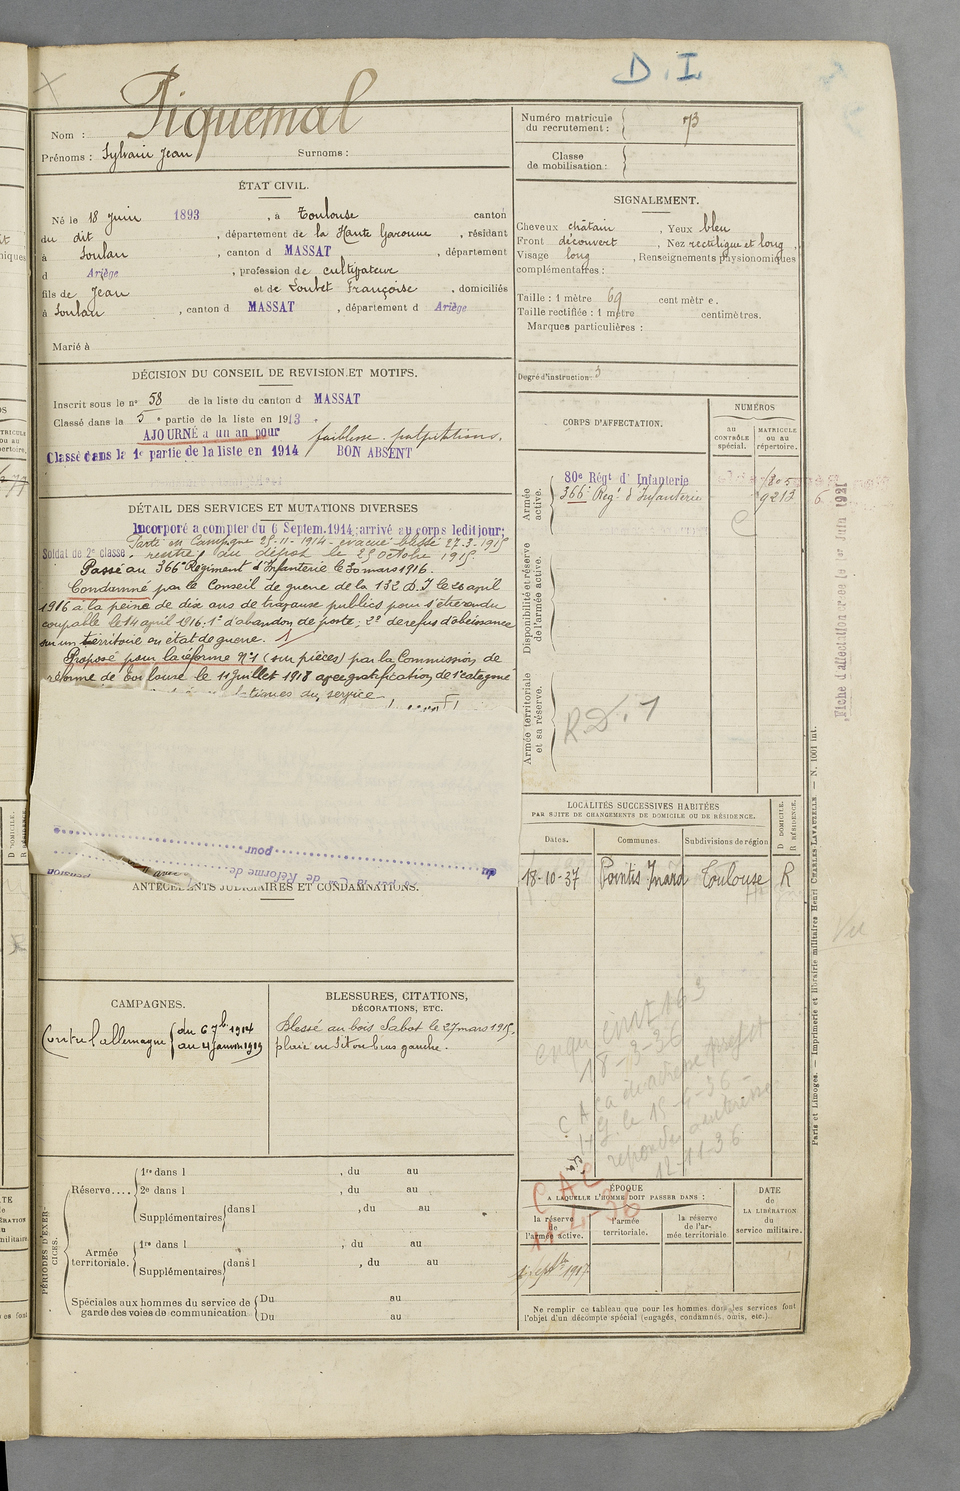 D. I.
Nom : Piquemal
Prénoms : Sylvain Jean Surnoms :
Numéro matricule du recrutement : 73
Classe de mobilisation :
ÉTAT CIVIL.
Né le 18 Juin 1893, à Toulouse canton
du dit, département de la Haute Garonne, résidant
à Soulan, canton d MASSAT, département
d Ariège, profession de cultivateur
fils de Jean et de Loubet Françoise, domiciliés
à Soulan, canton d MASSAT, département d Ariège
Marié à
SIGNALEMENT.
Cheveux châtain, Yeux bleu
Front découvert, Nez rectiligne et long,
Visage long, Renseignements physionomiques
complémentaires :
Taille : 1 mètre 69 centimètre.
Taille rectifiée : 1 mètre centimètres.
Marques particulières :
Degré d'instruction : 3
DÉCISION DU CONSEIL DE REVISION ET MOTIFS.
Inscrit sous le n° 58 de la liste du canton d MASSAT
Classé dans la 5e partie de la liste en 1913.
AJOURNÉ à un an pour faiblesse. palpitations.
Classé dans la 1e partie de la liste en 1914 BON ABSENT
DÉTAIL DES SERVICES ET MUTATIONS DIVERSES
Incorporé à compter du 6 Septem. 1914; arrivé au corps ledit jour;
Parti en Campagne 25-11-1914 - évacué blessé 27-3-1915
Soldat de 2e classe. rentré au dépôt le 25 octobre 1915.
Passé au 366e Régiment d'Infanterie le 30 mars 1916.
Condamné par le Conseil de guerre de la 132 D.I le 20 avril
1916 à la peine de dix ans de travaux publics pour s'être rendu
coupable le 14 avril 1916: 1° d'abandon de poste; 2° de refus d'obéissance
sur un territoire en état de guerre.
Proposé pour la réforme N°1 (sur pièces) par la Commission de
réforme de Toulouse le 11 Juillet 1918 avec gratification de 1e catégorie
du service
pour
de Réforme de
pension
CORPS D'AFFECTATION.
NUMÉROS
au CONTRÔLE spécial.
MATRICULE ou au répertoire.
Armée active.
80e Régt d'Infanterie
366e Regt d'Infanterie 9213
Disponibilité et réserve de l'armée active.
Armée territoriale et sa réserve.
R.D. 1
Fiche d'affectation créée le 1er Juin 1921
LOCALITÉS SUCCESSIVES HABITÉES
PAR SUITE DE CHANGEMENTS DE DOMICILE OU DE RÉSIDENCE.
Dates. Communes. Subdivisions de région D DOMICILE. R RÉSIDENCE.
18-10-37 Pointis Inard Toulouse R
ANTÉCÉDENTS JUDICIAIRES ET CONDAMNATIONS.
CAMPAGNES.
Contre l'allemagne du 6 7b 1914 au 4 Janvier 1919
BLESSURES, CITATIONS,
DÉCORATIONS, ETC.
Blessé au bois Sabot le 27 mars 1915.
plaie en séton bras gauche.
18-3-36
le 15-4-36 -
12-11-36
CAC
11-4-36
Vu
PÉRIODES D'EXERCICES.
Réserve....
1re dans l , du au
2e dans l , du au
Supplémentaires dans l , du au
Armée territoriale.
1re dans l , du au
Supplémentaires dans l , du au
Spéciales aux hommes du service de
garde des voies de communication
Du au
Du au
ÉPOQUE
A LAQUELLE L'HOMME DOIT PASSER DANS :
la réserve de l'armée active.
l'armée territoriale.
la réserve de l'armée territoriale
DATE de LA LIBÉRATION du service militaire.
1917
Ne remplir ce tableau que pour les hommes dont les services font
l'objet d'un décompte spécial (engagés, condamnés, omis, etc.).
Paris et Limoges. — Imprimerie et librairie militaires Henri CHARLES-LAVAUZELLE — N. 1001 int.